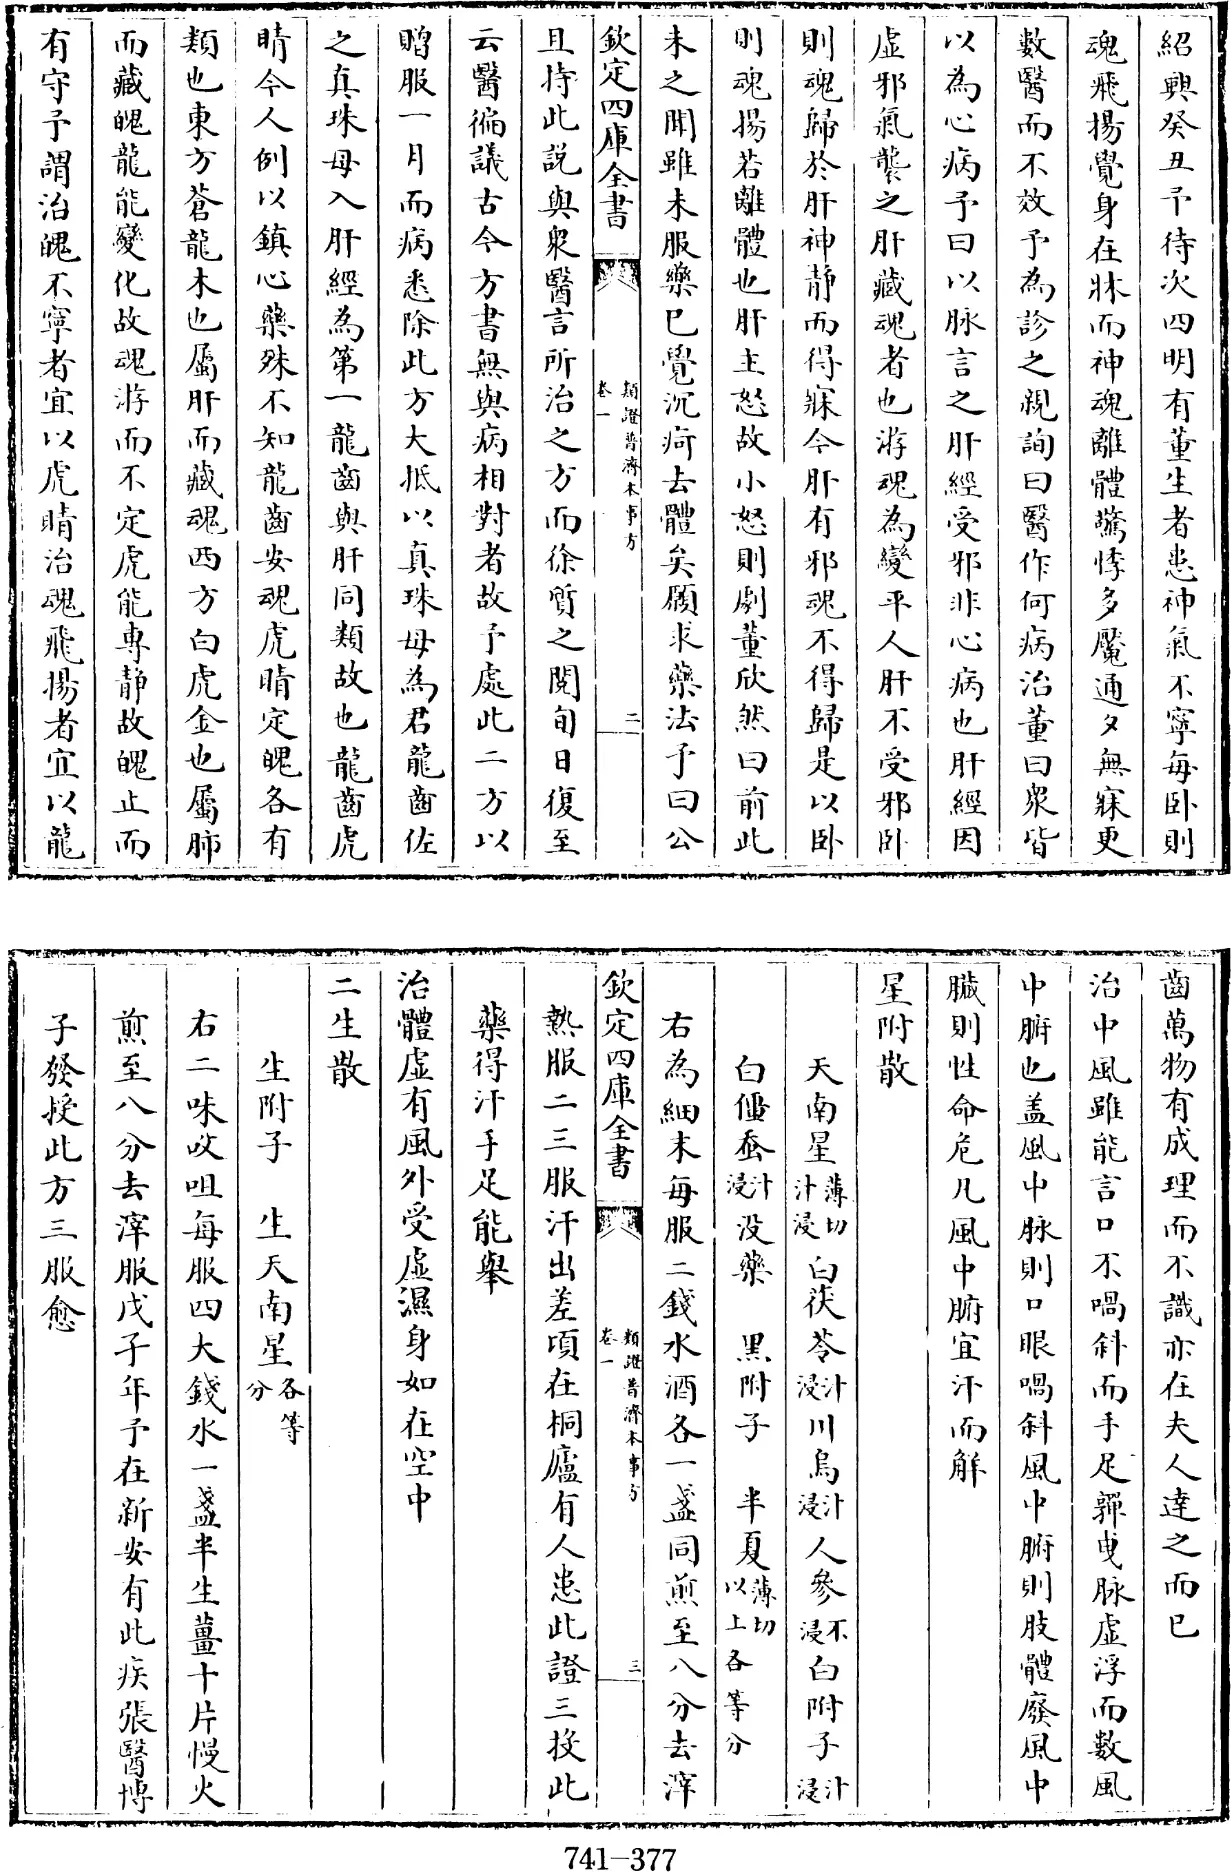 紹興癸丑予待次四明有董生者患神氣不寧每卧則
魂飛揚覺身在牀而神魂離體驚悸多魘通夕無寐更
數醫而不效予為診之視詢曰醫作何病治董曰衆皆
以為心病予曰以脉言之肝經受邪非心病也肝經因
虛邪氣襲之肝藏魂者也游魂為變平人肝不受邪卧
則魂歸於肝神静而得寐今肝有邪魂不得歸是以卧
則魂揚若離體也肝主怒故小怒則劇董欣然曰前此
未之聞雖未服藥已覺沉疴去體矣願求藥法予曰公
欽定四庫全書 類證普濟本事方 卷一 二
且持此説與衆醫言所治之方而徐質之閱旬日復至
云醫徧議古今方書無與病相對者故予處此二方以
贈服一月而病悉除此方大抵以真珠母為君龍齒佐
之真珠母入肝經為第一龍齒與肝同類故也龍齒虎
睛今人例以鎮心藥殊不知龍齒安魂虎睛定魄各有
類也東方蒼龍木也屬肝而藏魂西方白虎金也屬肺
而藏魄龍能變化故魂游而不定虎能專静故魄止而
有守予謂治魄不寧者宜以虎睛治魂飛揚者宜以龍
齒萬物有成理而不識亦在夫人達之而已
治中風雖能言口不喎斜而手足嚲曳脉虛浮而數風
中腑也盖風中脉則口眼喎斜風中腑則肢體廢風中
臟則性命危凡風中腑宜汗而解
星附散
天南星薄切汁浸 白茯苓汁浸 川烏汁浸 人參不浸 白附子汁浸
白僵蚕汁浸 没藥 黑附子 半夏薄切以上各等分
右為細末每服二錢水酒各一盞同煎至八分去滓
欽定四庫全書 類證普濟本事方 卷一 三
熱服二三服汗出差頃在桐廬有人患此證三投此
藥得汗手足能舉
治體虛有風外受虛濕身如在空中
二生散
生附子 生天南星各等分
右二味㕮咀每服四大錢水一盞半生薑十片慢火
煎至八分去滓服戊子年予在新安有此疾張醫博
子發授此方三服愈
741-377